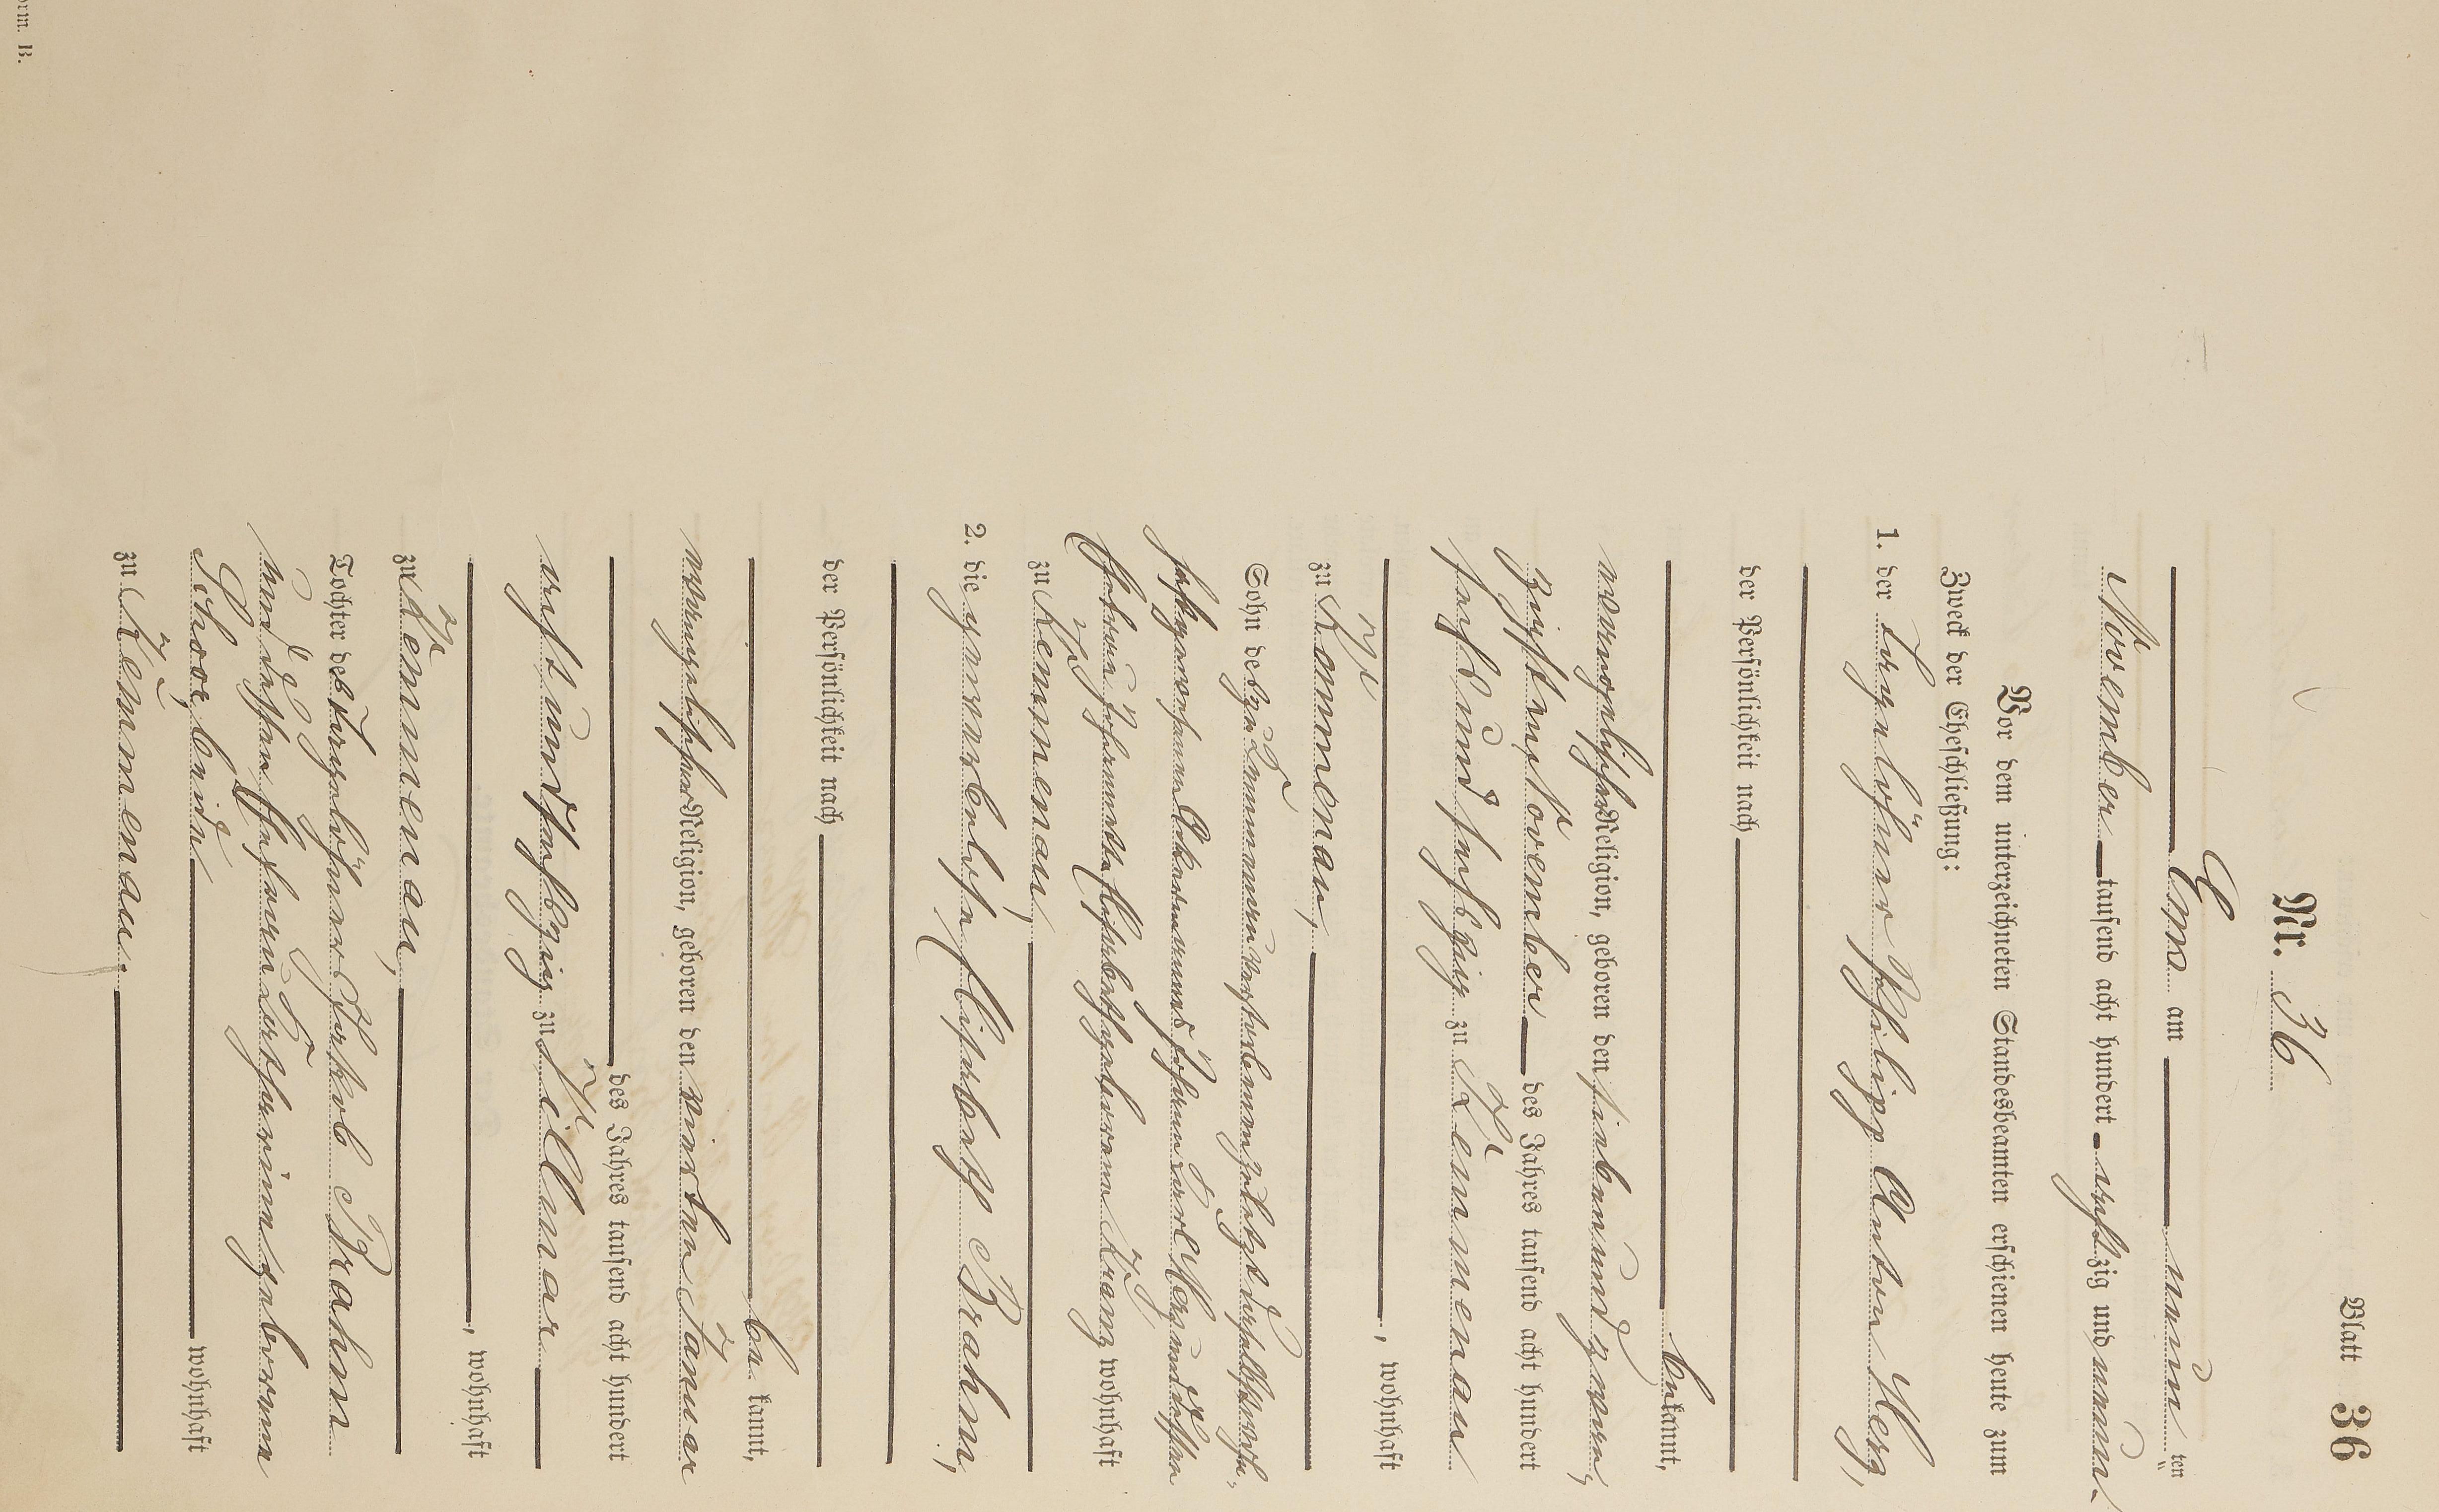 Blatt 36
Nr. 36
Ems am neun ten
November tausend acht hundert achtzig und neun.
Vor dem unterzeichneten Standesbeamten erschienen heute zum
Zweck der Eheschließung:
1. der Tagelöhner Philipp Anton Merz,
der Persönlichkeit nach
bekannt,
evangelischer Religion, geboren den siebenundzwan-
zigsten November des Jahres tausend acht hundert
sechsundsechszig zu Kemmenau
, wohnhaft
zu Kemmenau,
Sohn des zu Kemmenau verstorbenen, zuletzt daselbst wohn-
haft gewesenen Johann Karl Merz und dessen
Ehefrau Elisabeth geborene Kranz wohnhaft
zu Kemmenau,
2. die gewerbelose Elisabeth Brahm,
der Persönlichkeit nach
be kannt,
evangelischer Religion, geboren den vierten Januar
des Jahres tausend acht hundert
und sechszig zu
, wohnhaft
zu Kemmenau,
Tochter des Tagelöhner Jakob Brahm
und dessen Ehefrau Katharine geborenen
Schoor, beide wohnhaft
zu Kemmenau.
orm. B.